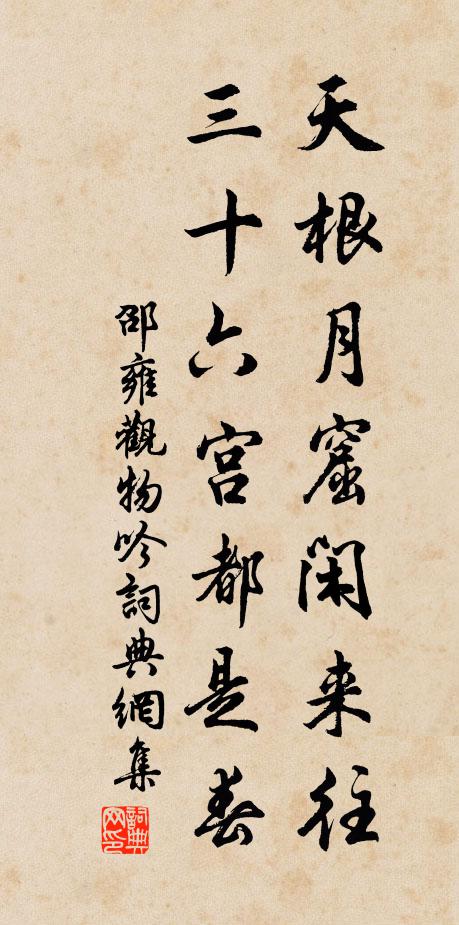 天根月窟閑来往
三十六宫都是春
邵雍觀物吟詞典網集
詞典網印